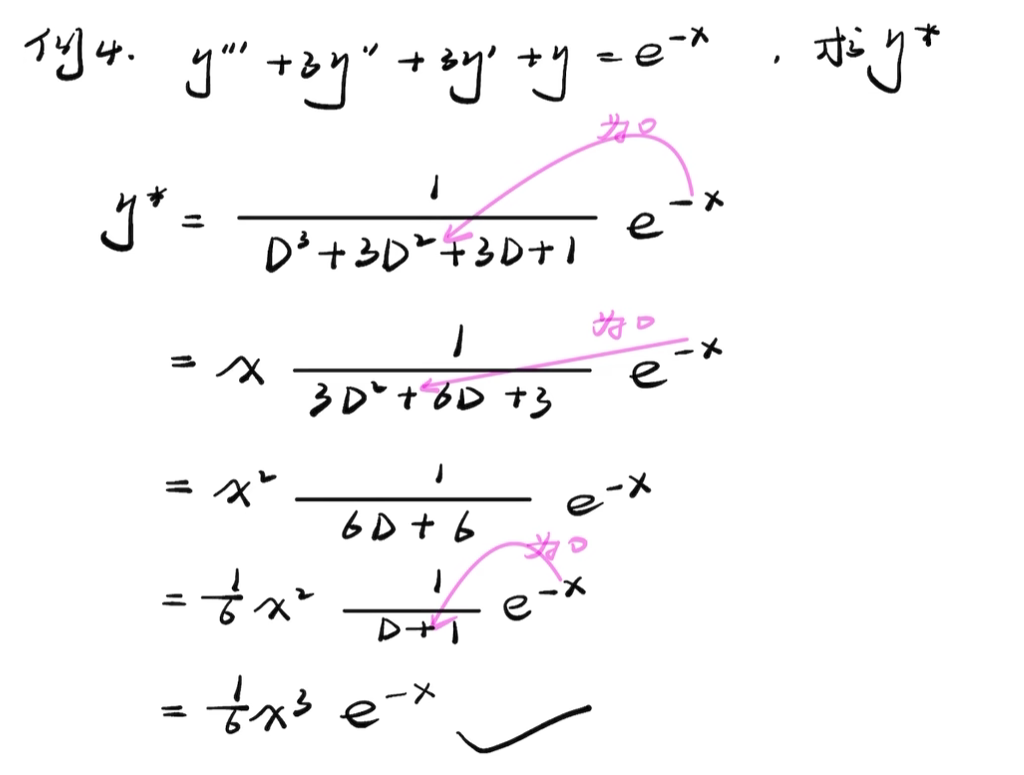 例4. y''' + 3y'' + 3y' + y = e^{-x} . 求 y*
为0
y* = \frac{1}{D^3+3D^2+3D+1} e^{-x}
为0
= x \frac{1}{3D^2+6D+3} e^{-x}
= x^2 \frac{1}{6D+6} e^{-x}
为0
= \frac{1}{6} x^2 \frac{1}{D+1} e^{-x}
= \frac{1}{6} x^3 e^{-x} ✓